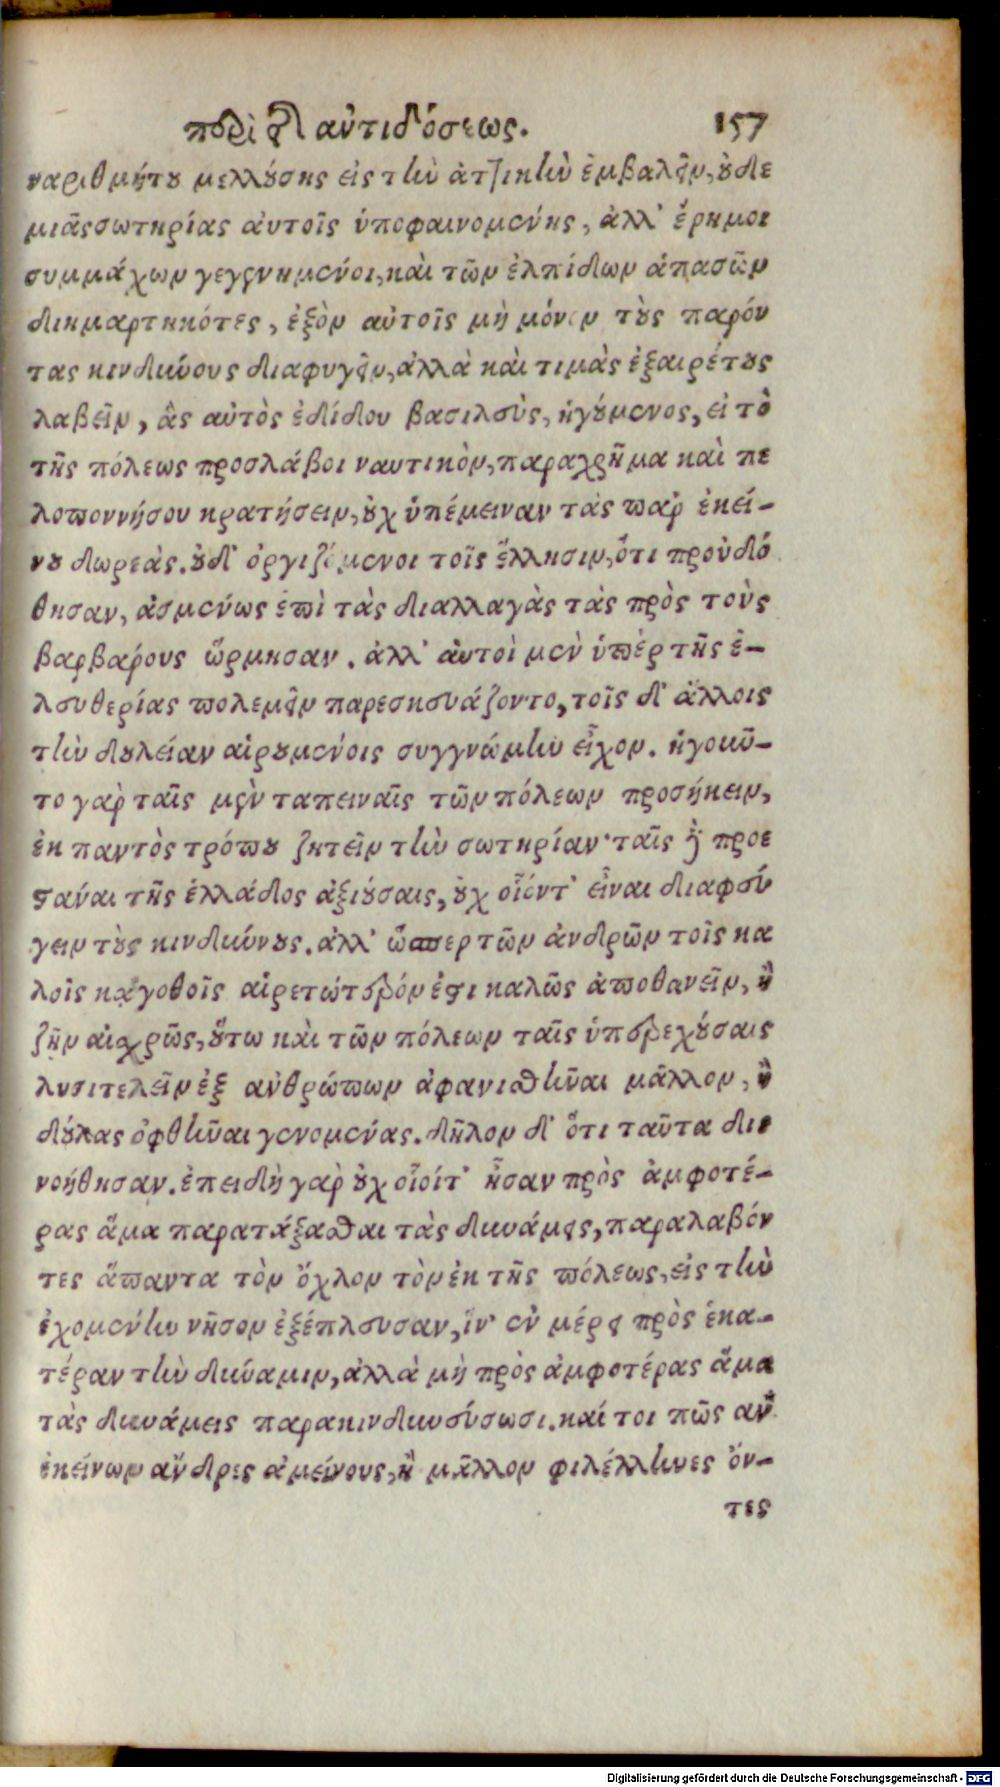 περὶ τῆς ἀντιδόσεως. 157
ναριθμήτου μελλούσης εἰς τὴν ἀττικὴν ἐμβαλεῖν, οὐδε
μιᾶς σωτηρίας αὐτοῖς ὑποφαινομένης, ἀλλ' ἔρημοι
συμμάχων γεγενημένοι, καὶ τῶν ἐλπίδων ἁπασῶν
διημαρτηκότες, ἐξὸν αὐτοῖς μὴ μόνον τοὺς παρόν
τας κινδύνους διαφυγεῖν, ἀλλὰ καὶ τιμὰς ἐξαιρέτους
λαβεῖν, ἃς αὐτὸς ἐδίδου βασιλεὺς, ἡγούμενος, εἰ τὸ
τῆς πόλεως προσλάβοι ναυτικὸν, παραχρῆμα καὶ πε
λοποννήσου κρατήσειν, οὐχ ὑπέμειναν τὰς παρ' ἐκεί-
νου δωρεὰς. οὐδ' ὀργιζόμενοι τοῖς ἕλλησιν, ὅτι προὐδό
θησαν, ἀσμένως ἐπὶ τὰς διαλλαγὰς τὰς πρὸς τοὺς
βαρβάρους ὥρμησαν. ἀλλ' αὐτοὶ μὲν ὑπὲρ τῆς ἐ-
λευθερίας πολεμεῖν παρεσκευάζοντο, τοῖς δ' ἄλλοις
τὴν δουλείαν αἱρουμένοις συγγνώμην εἶχον. ἡγοῦν-
το γὰρ ταῖς μὲν ταπειναῖς τῶν πόλεων προσήκειν,
ἐκ παντὸς τρόπου ζητεῖν τὴν σωτηρίαν· ταῖς δὲ προε
στάναι τῆς ἑλλάδος ἀξιούσαις, οὐχ οἷόντ' εἶναι διαφεύ
γειν τοὺς κινδύνους. ἀλλ' ὥσπερ τῶν ἀνδρῶν τοῖς κα
λοῖς κἀγαθοῖς αἱρετώτερόν ἐστι καλῶς ἀποθανεῖν, ἢ
ζῆν αἰσχρῶς, οὕτω καὶ τῶν πόλεων ταῖς ὑπερεχούσαις
λυσιτελεῖν ἐξ ἀνθρώπων ἀφανισθῆναι μᾶλλον, ἢ
δούλας ὀφθῆναι γενομένας. δῆλον δ' ὅτι ταῦτα διε
νοήθησαν. ἐπειδὴ γὰρ οὐχ οἷοίτ' ἦσαν πρὸς ἀμφοτέ-
ρας ἅμα παρατάξασθαι τὰς δυνάμεις, παραλαβόν
τες ἅπαντα τὸν ὄχλον τὸν ἐκ τῆς πόλεως, εἰς τὴν
ἐχομένην νῆσον ἐξέπλευσαν, ἵν' ἐν μέρει πρὸς ἑκα-
τέραν τὴν δύναμιν, ἀλλὰ μὴ πρὸς ἀμφοτέρας ἅμα
τὰς δυνάμεις παρακινδυνεύσωσι. καί τοι πῶς ἂν
ἐκείνων ἄνδρες ἀμείνους, ἢ μᾶλλον φιλέλληνες ὄν-
τες
Digitalisierung gefördert durch die Deutsche Forschungsgemeinschaft - DFG